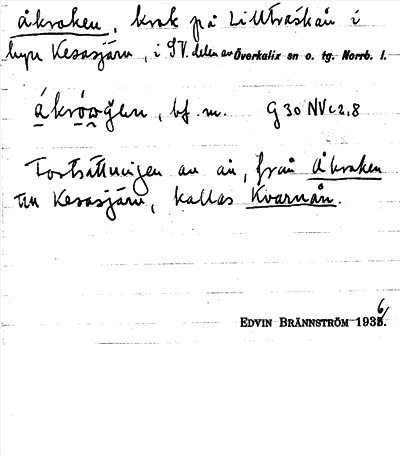 åkroken, krok på Lillträskån i
byn Kesasjärv, i SV. delen av Överkalix sn o. tg. Norrb. l.
ákrówg̀en, bf. m. G 30 NV c 2,8
Fortsättningen av ån, från Åkroken
till Kesasjärv, kallas Kvarnån.
EDVIN BRÄNNSTRÖM 1936.